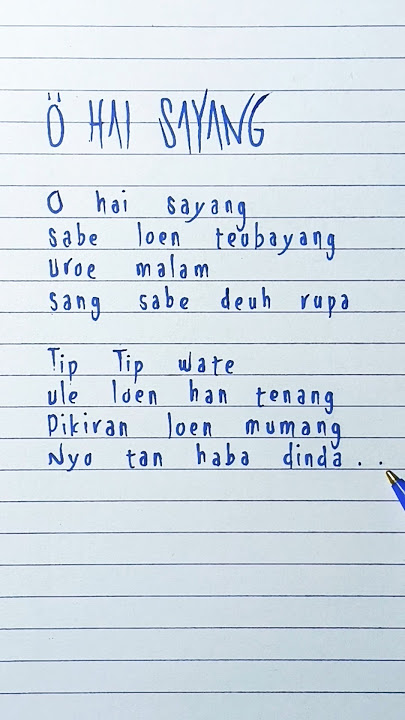 Ö HAI SAYANG
O hai sayang
sabe loen teubayang
Uroe malam
sang sabe deuh rupa
Tip Tip wate
ule loen han tenang
Pikiran loen mumang
Nyo tan haba dinda . .